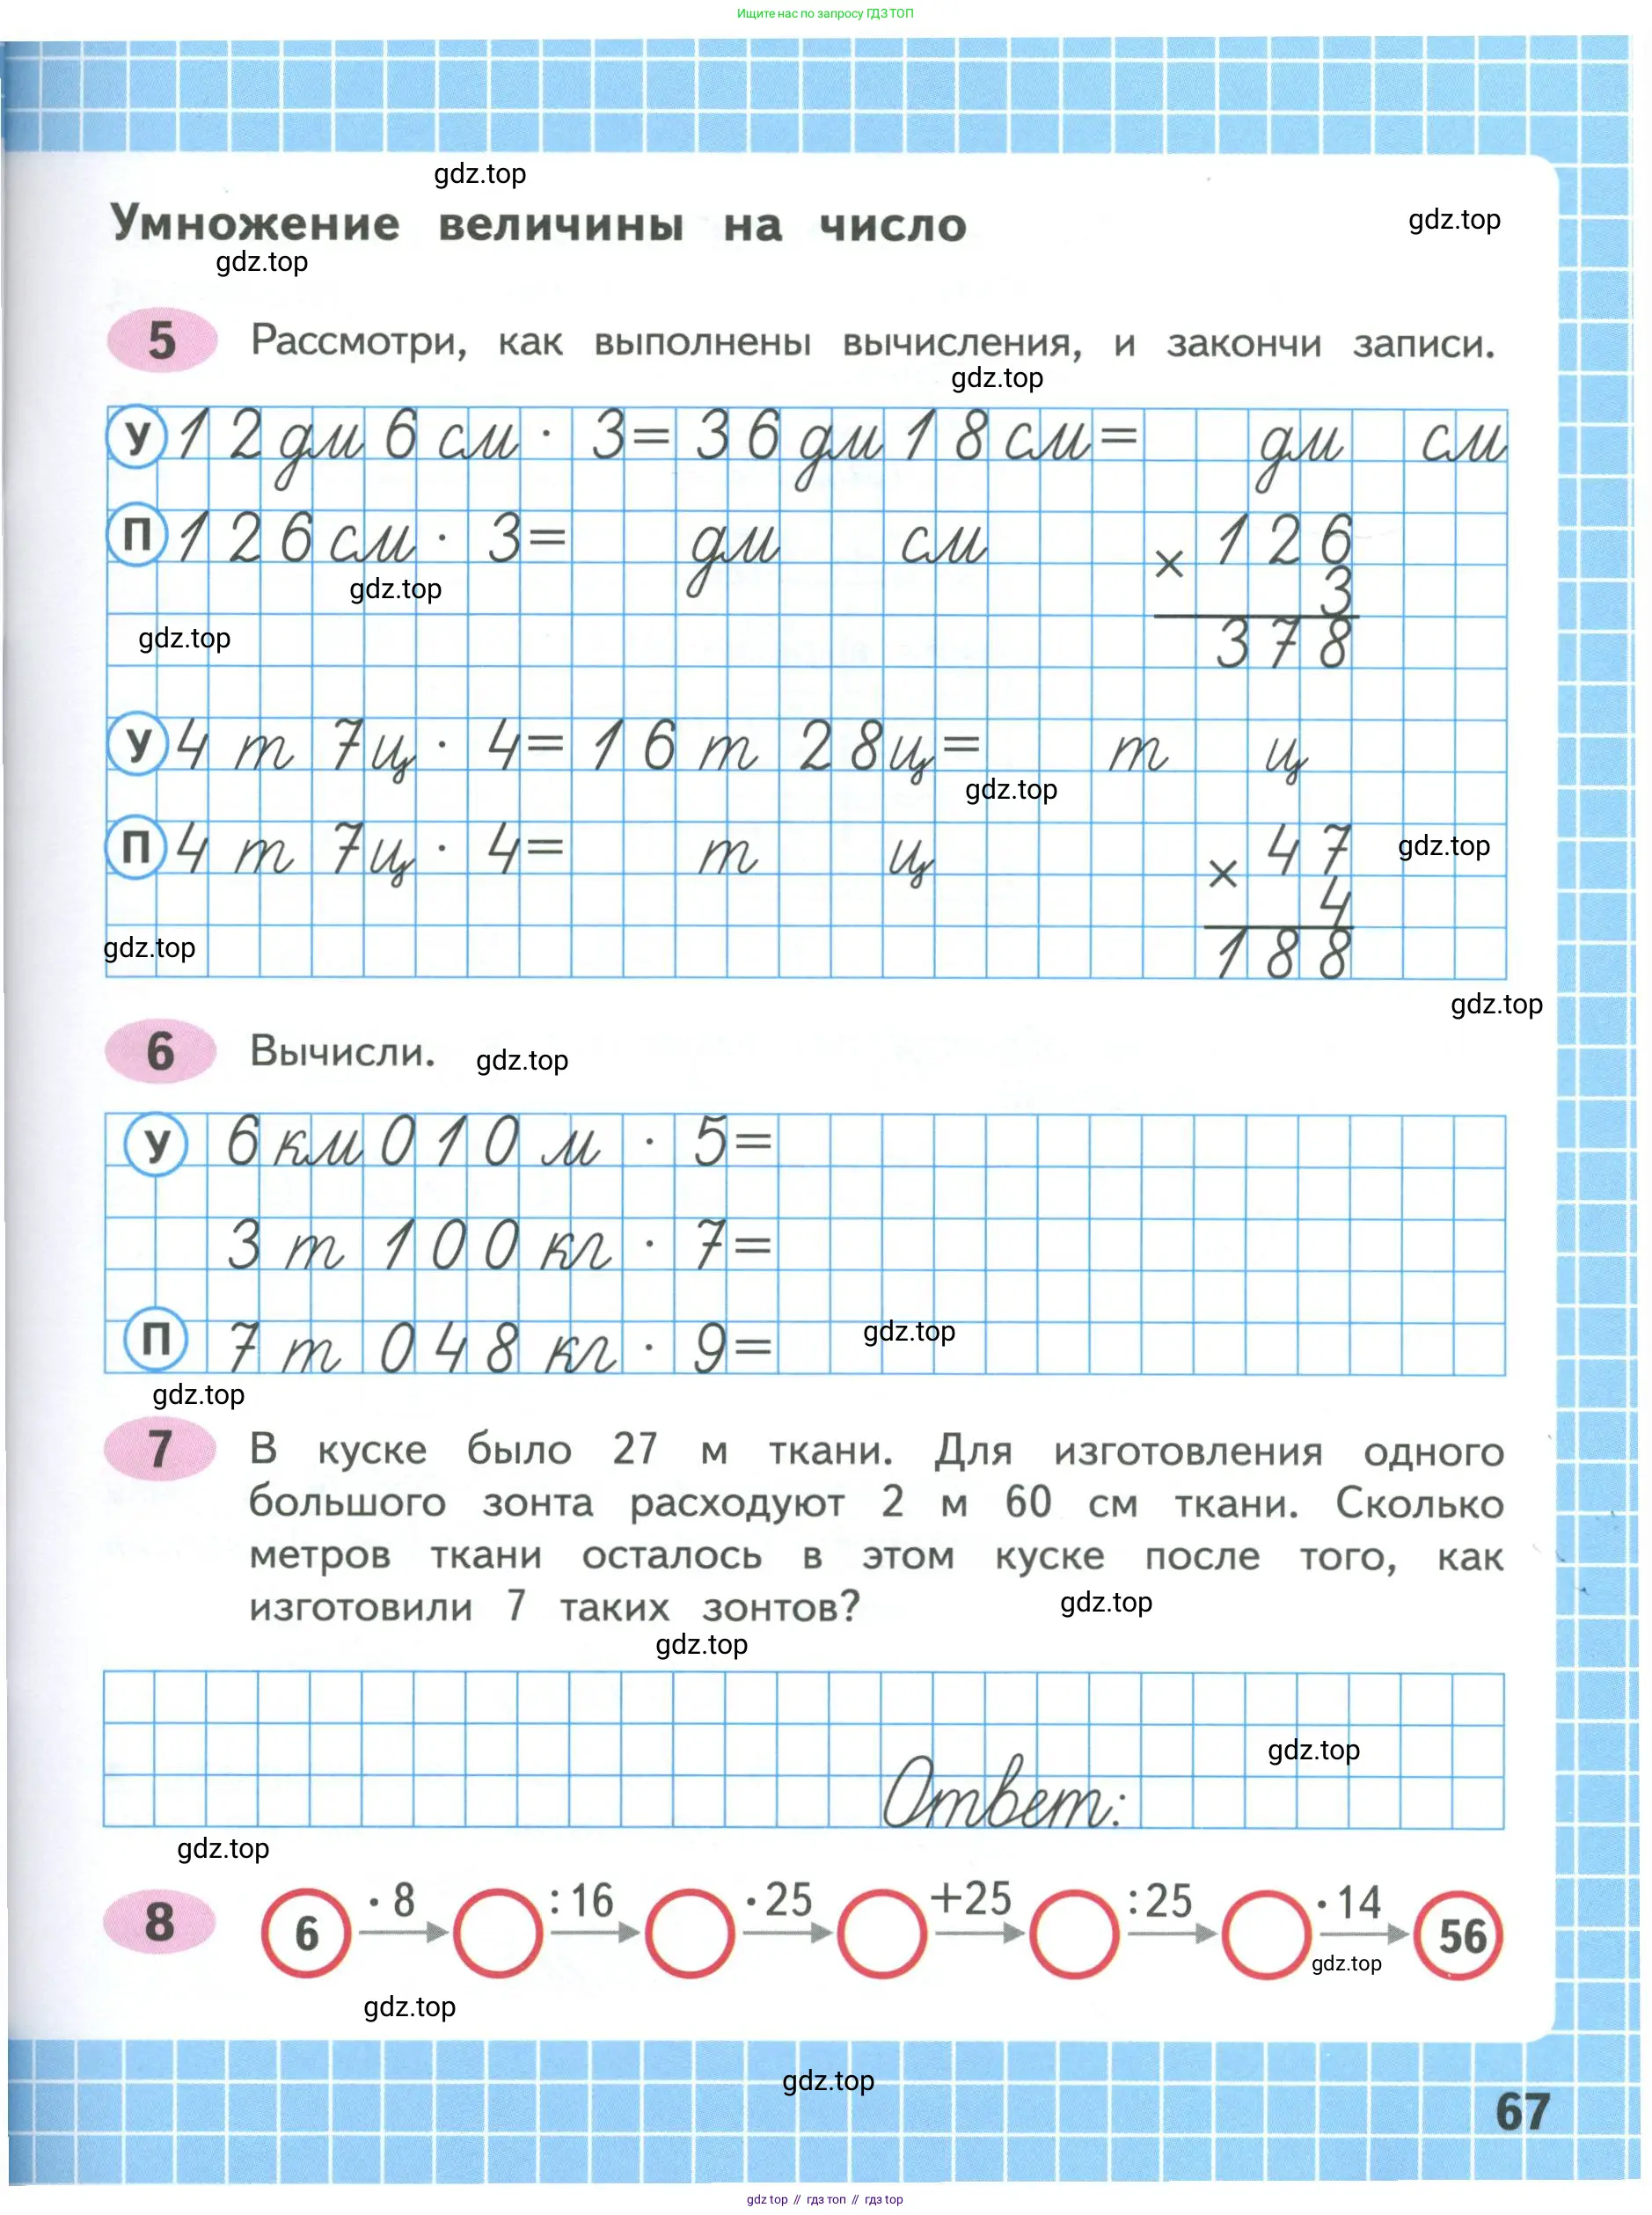 Ищите нас по запросу ГДЗ ТОП
gdz.top
Умножение величины на число
gdz.top
gdz.top
5 Рассмотри, как выполнены вычисления, и закончи записи.
gdz.top
У 12 дм 6 см · 3 = 36 дм 18 см = дм см
П 126 см · 3 = дм см
× 126
3
378
gdz.top
gdz.top
У 4 т 7 ц · 4 = 16 т 28 ц = т ц
gdz.top
П 4 т 7 ц · 4 = т ц
× 47
4
188
gdz.top
gdz.top
gdz.top
6 Вычисли.
gdz.top
У 6 км 010 м · 5 =
3 т 100 кг · 7 =
П 7 т 048 кг · 9 =
gdz.top
gdz.top
7 В куске было 27 м ткани. Для изготовления одного
большого зонта расходуют 2 м 60 см ткани. Сколько
метров ткани осталось в этом куске после того, как
изготовили 7 таких зонтов?
gdz.top
gdz.top
gdz.top
Ответ:
gdz.top
8 6 · 8 : 16 · 25 + 25 : 25 · 14 56
gdz.top
gdz.top
gdz.top
67
gdz top // гдз топ // гдз top